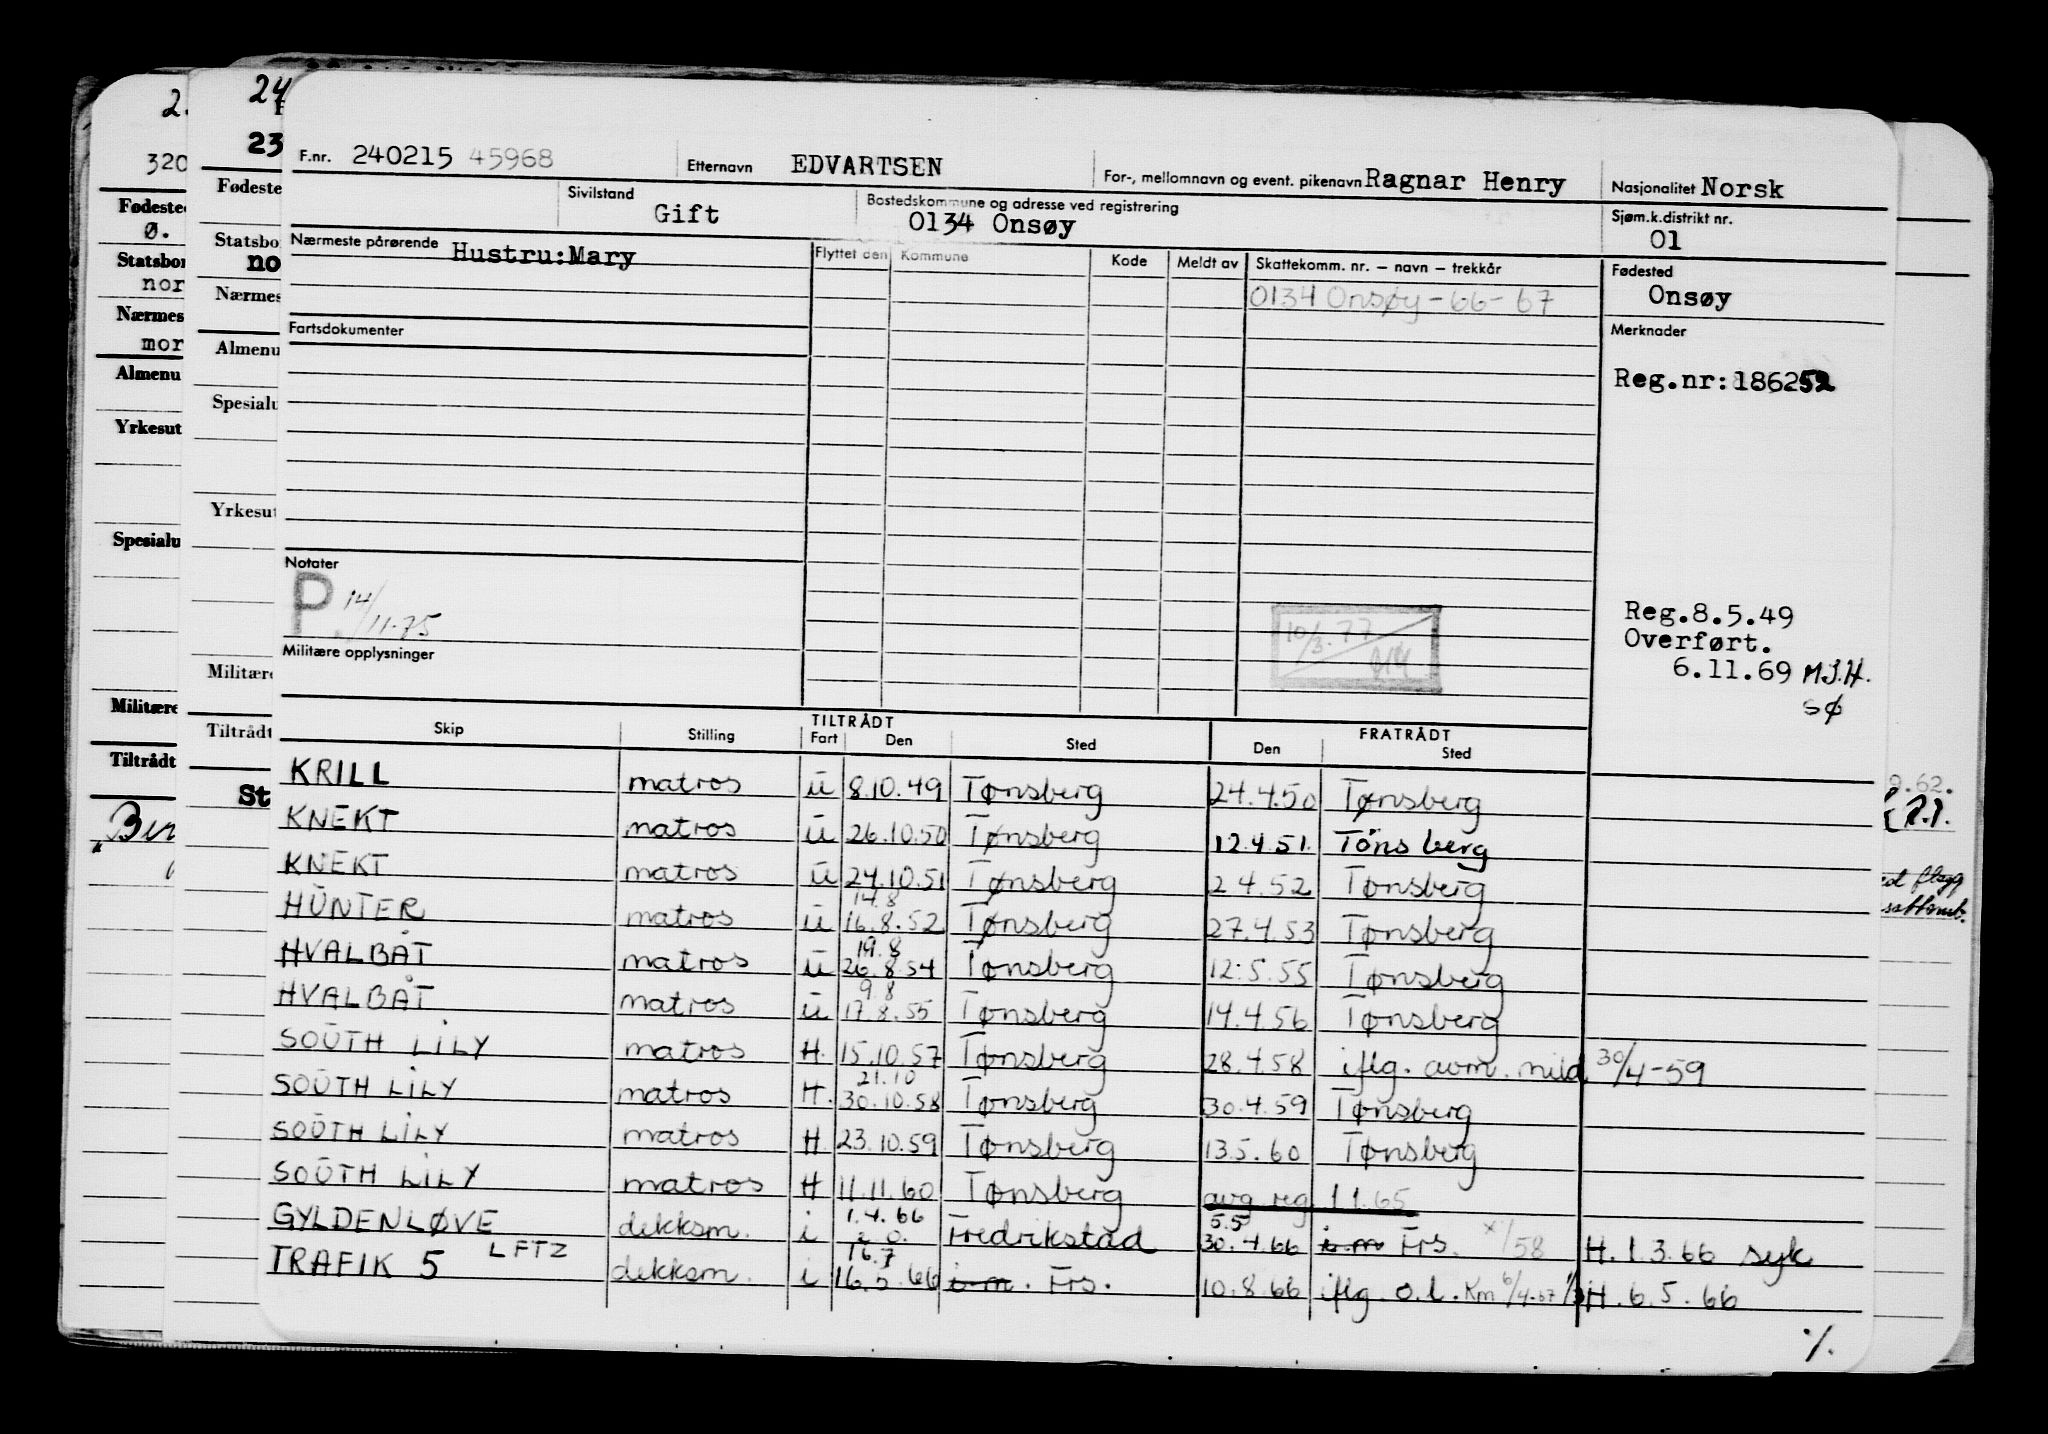 F.nr. 240215 45968 Etternavn EDVARTSEN For-, mellomnavn og event. pikenavn Ragnar Henry Nasjonalitet Norsk
Sivilstand Gift Bostedskommune og adresse ved registrering 0134 Onsøy Sjøm.k.distrikt nr. 01
Nærmeste pårørende Hustru:Mary Flyttet den Kommune Kode Meldt av Skattekomm. nr. – navn – trekkår Fødested
0134 Onsøy-66-67 Onsøy
Fartsdokumenter Merknader
Reg.nr:186252
Notater
P. 14/11-75
10/3.77
Reg.8.5.49
Overført.
6.11.69 M.J.H.
SØ
Militære opplysninger
TILTRÅDT FRATRÅDT
Skip Stilling Fart Den Sted Den Sted
KRILL matros u 8.10.49 Tønsberg 24.4.50 Tønsberg
KNEKT matros u 26.10.50 Tønsberg 12.4.51. Tönsberg
KNEKT matros u 24.10.51 Tønsberg 2 4.52 Tønsberg
14.8
HUNTER matros u 16.8.52 Tønsberg 27.4.53 Tønsberg
19.8
HVALBÅT matros u 26.8.54 Tønsberg 12.5.55 Tønsberg
9.8
HVALBÅT matros u 17.8.55 Tønsberg 14.4.56 Tønsberg
SOUTH LILY matros H. 15.10.57 Tønsberg 28.4.58 iflg. avm. mld 30/4-59
21.10
SOUTH LILY matros H. 30.10.58 Tønsberg 30.4.59 Tønsberg
SOUTH LILY matros H 23.10.59 Tønsberg 13.5.60 Tønsberg
SOUTH LILY matros H 11.11.60 Tønsberg avg reg 1 1.65
1.4.66 5.5
GYLDENLØVE dekksm. i Fredrikstad 30.4.66 i.m Frs. x/58 H.1.3.66 syk
16.7
TRAFIK 5 LFTZ dekksm. i 16.5.66 i m. Frs. 10.8.66 iflg. o.l. Km 6/4-67 H.6.5.66
·/.
2.
320
Fødested
Ø.
Statsbor
nor
Nærmes
mor
Almenu
Yrkesut
Spesialu
Militære
Tiltrådt
Ber
24
23
Fødeste
Statsbo
no
Nærmes
Almenu
Spesialu
Yrkesut
Militære
Tiltrådt
St
.62.